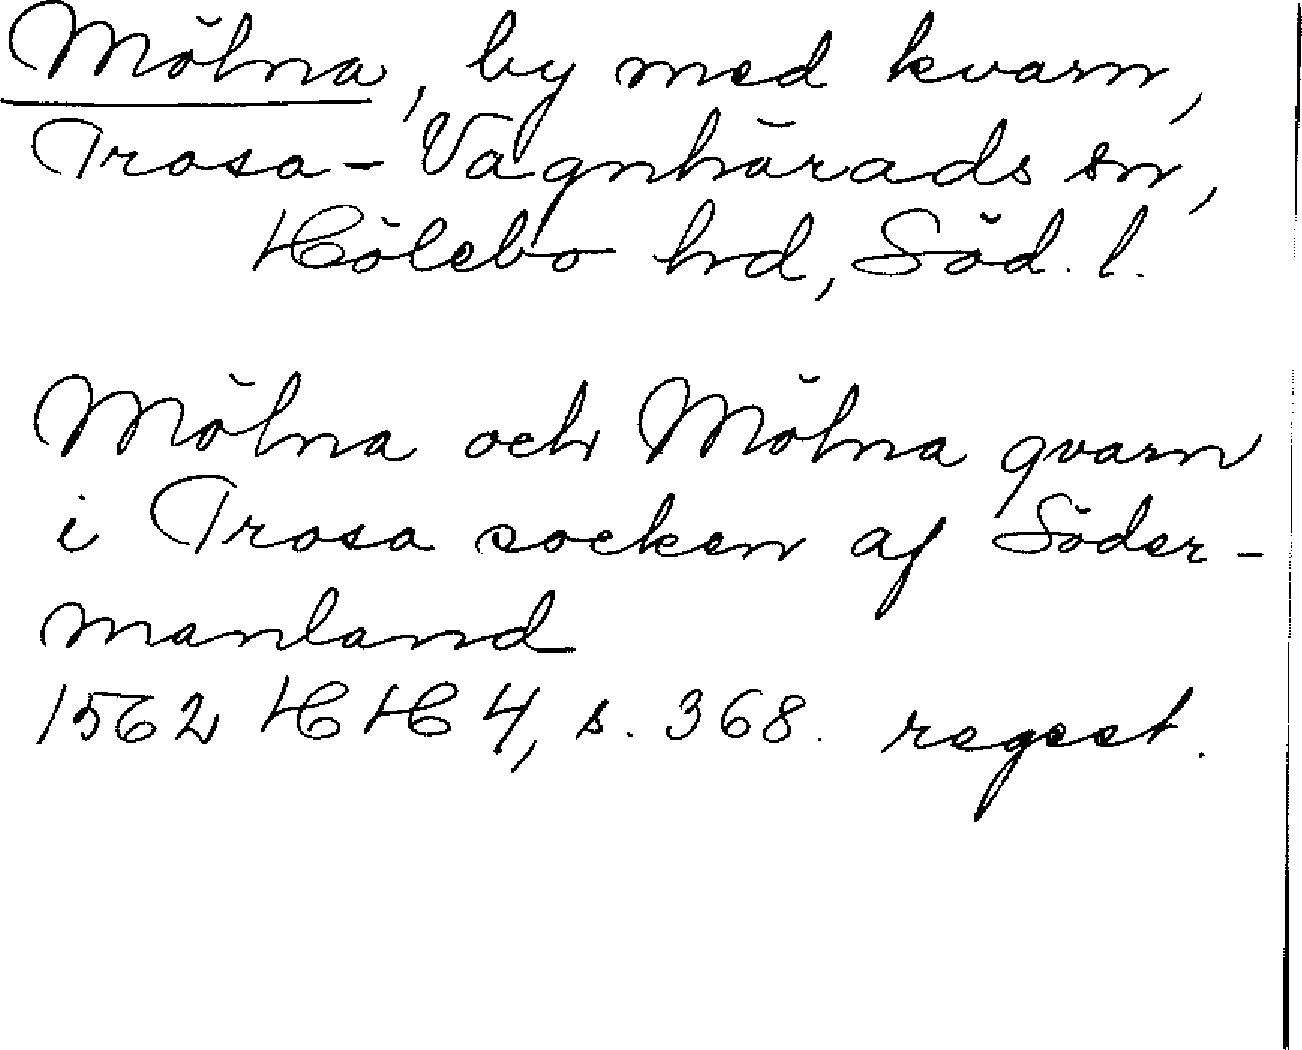 Mölna, by med kvarn,
Trosa-Vagnhärads sn,
Hölebo hd, Söd. l.
Mölna och Mölna qvarn
i Trosa socken af Söder-
manland
1562 HH 4, s. 368. regest.